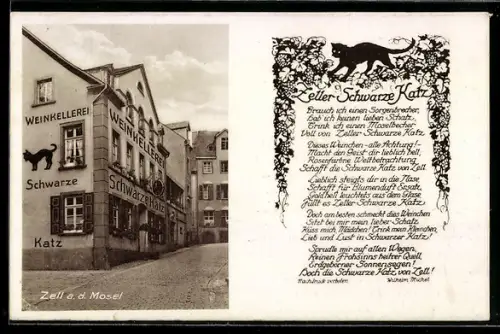 WEINKELLEREI
Schwarze
Katz
WEINKELLEREI
Schwarze Katz
Zell a. d. Mosel
Zeller Schwarze Katz
Brauch ich einen Sorgenbrecher,
Hab' ich keinen lieben Schatz,
Trink ich einen Moselbecher
Voll von Zeller Schwarze Katz.
Dieses Weinchen - alle Achtung!
Macht den Geist dir lieblich hell,
Rosenfarbne Weltbetrachtung
Schafft die Schwarze Katz von Zell.
Lieblich steigts dir in die Nase
Schafft für Blumenduft Ersatz,
Goldhell leuchtets aus dem Glase
Füllt es Zeller Schwarze Katz.
Doch am besten schmeckt dies Weinchen
Sitzt bei mir mein lieber Schatz.
Küss mich, Mädchen! Trink mein Kleinchen,
Lieb und Lust in Schwarzer Katz!
Sprudle mir auf allen Wegen,
Reinen Frohsinns heitrer Quell,
Erdgeborner Sonnensegen!
Hoch die Schwarze Katz von Zell!
Nachdruck verboten. Wilhelm Michel